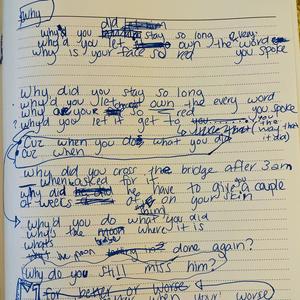 Why
did
why'd you stay so long
why'd you let own the every word
why is your face so red you spoke
Why did you stay so long
why'd you let own the every word
why are your so red you spoke
? why'd you let it get to you
way that
it did)
Cuz when you do what you did
cuz when
why did you cross the bridge after 3am
when asked for it
why did he have to give a couple
of weeks after on your skin
why'd you do what you did
why's the moon where it is
what's done again?
Why do you still miss him?
for better or worse
your when your worse